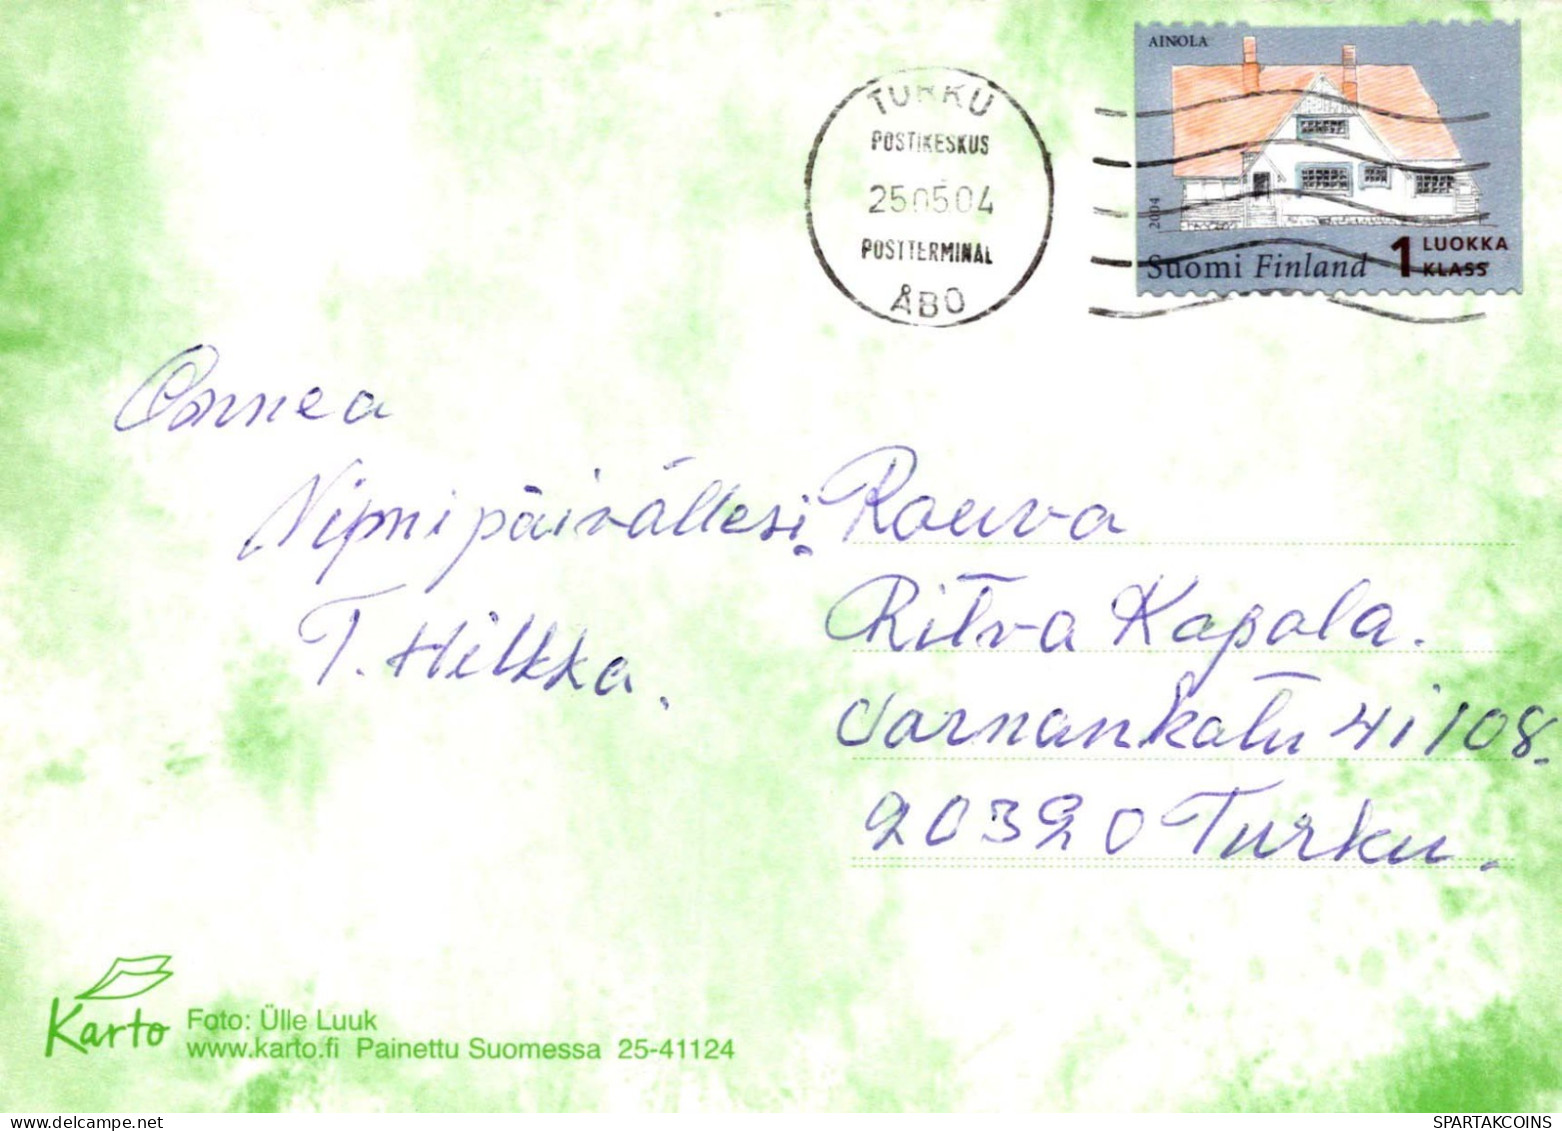 AINOLA
2004
Suomi Finland 1 LUOKKA
KLASS
TURKU
POSTIKESKUS
25.05.04
POSTTERMINAL
ÅBO
Onnea
Nipmipäivällesi
T. Hilkka.
Rouva
Ritva Kapala.
Varnankatu 4 i 108.
20320 Turku.
Karto
Foto: Ülle Luuk
www.karto.fi Painettu Suomessa 25-41124
SPARTAKCOINS